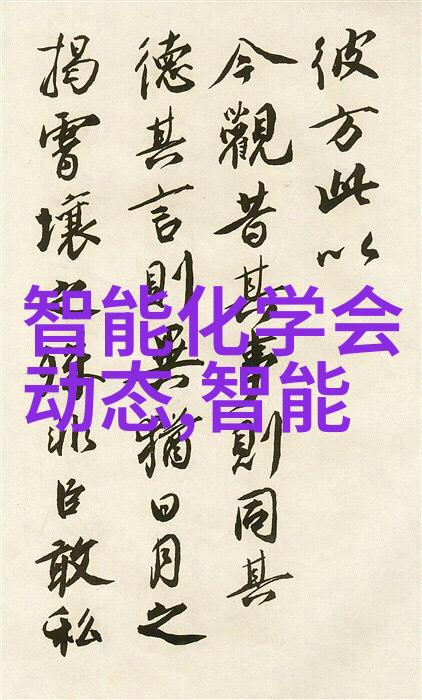 彼方此以
今觀昔其事則同其
德其言則異猶日月之
揭霄壤之殊非臣敢私
智能化学会
动态,智能